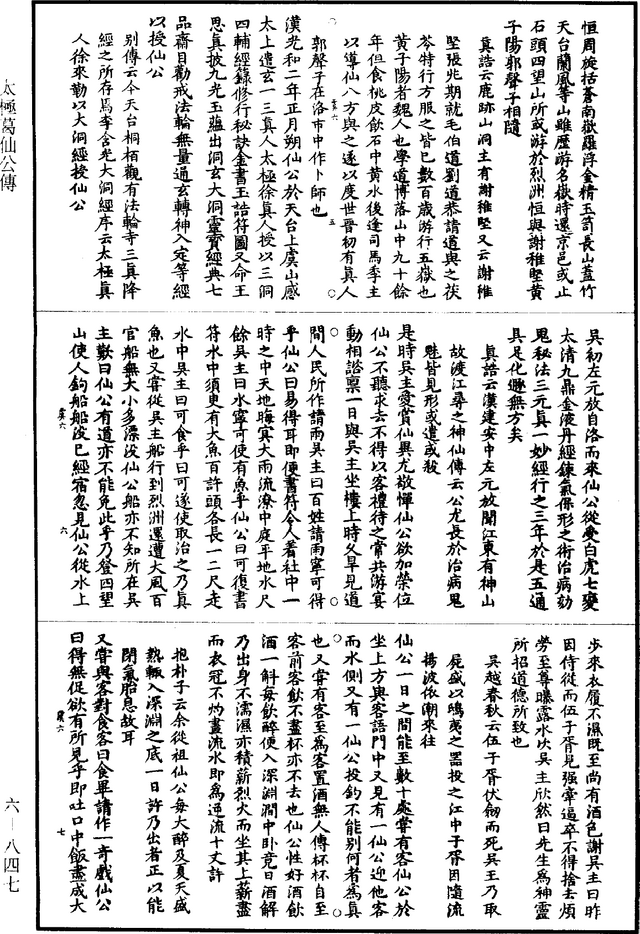 太極葛仙公傳
恒周旋括蒼南嶽羅浮金精玉笥長山蓋竹
天台蘭風等山雖歷游名嶽時還京邑或止
石頭四望山所或游於烈洲恒與謝稚堅黃
子陽郭聲子相隨
真誥云鹿跡山洞主有謝稚堅又云謝稚
堅張兆期就毛伯道劉道恭請道與之茯
苓特行方服之皆已數百歲游行五嶽也
黃子陽者魏人也學道博落山中九十餘
年但食桃皮飲石中黃水後逢司馬季主
以導仙八方與之遂以度世晉初有真人
郭聲子在洛市中作卜師也
漢光和二年正月朔仙公於天台上虞山感
太上遣玄一三真人太極徐真人授以三洞
四輔經籙修行秘訣金書玉誥符圖又命王
思真披九光玉蘊出洞玄大洞靈寶經典七
品齋目勸戒法輪無量通玄轉神入定等經
以授仙公
別傳云今天台桐栢觀有法輪寺三真降
經之所存馬李含光大洞經序云太極真
人徐來勒以大洞經授仙公
吳初左元放自洛而來仙公從受白虎七變
太清九鼎金液丹經鍊氣保形之術治病劾
鬼秘法三元真一妙經行之三年於是五通
具足化遯無方矣
真誥云漢建安中左元放聞江東有神山
故渡江尋之神仙傳云公尤長於治病鬼
魅皆見形或遣或殺
是時吳主愛賞仙異尤敬憚仙公欲加榮位
仙公不聽求去不得以客禮待之常共游宴
動相諮稟一日與吳主坐樓上時久旱見道
間人民所作請雨吳主曰百姓請雨寧可得
乎仙公曰易得耳即便書符令人著社中一
時之中天地晦冥大雨流潦中庭平地水尺
餘吳主曰水寧可使有魚乎仙公曰可復書
符水中須更有大魚百許頭各長一二尺走
水中吳主曰可食乎曰可遂使取治之乃真
魚也又甞從吳主船行到烈洲還遭大風百
官船無大小多漂没仙公船亦不知所在吳
主歎曰仙公有道亦不能免此乎乃登四望
山使人鉤船船没已經宿忽見仙公從水上
步來衣履不濕既至尚有酒色謝吳主曰昨
因侍從而伍子胥見强牽過卒不得捨去煩
勞至尊曝露水次吳主欣然曰先生為神靈
所招道德所致也
吳越春秋云伍子胥伏劍而死吳王乃取
屍盛以鴟夷之器投之江中子胥因隨流
揚波依潮來往
仙公一日之間能至數十處甞有客仙公於
坐上方與客語門中又見有一仙公迎他客
而水側又有一仙公投釣不能別何者為真
也又甞有客至為客置酒無人傳杯杯自至
客前客飲不盡杯亦不去也仙公性好酒飲
酒一斛每飲醉便入深淵澗中卧竟日酒解
乃出身不濡濕亦積薪烈火而坐其上薪盡
而衣冠不灼晝流水即為逆流十丈許
抱朴子云余從祖仙公每大醉及夏天盛
熱輒入深淵之底一日許乃出者正以能
閉氣胎息故耳
又甞與客對食客曰食畢請作一奇戲仙公
曰得無促欲有所見乎即吐口中飯盡成大
六—八四七